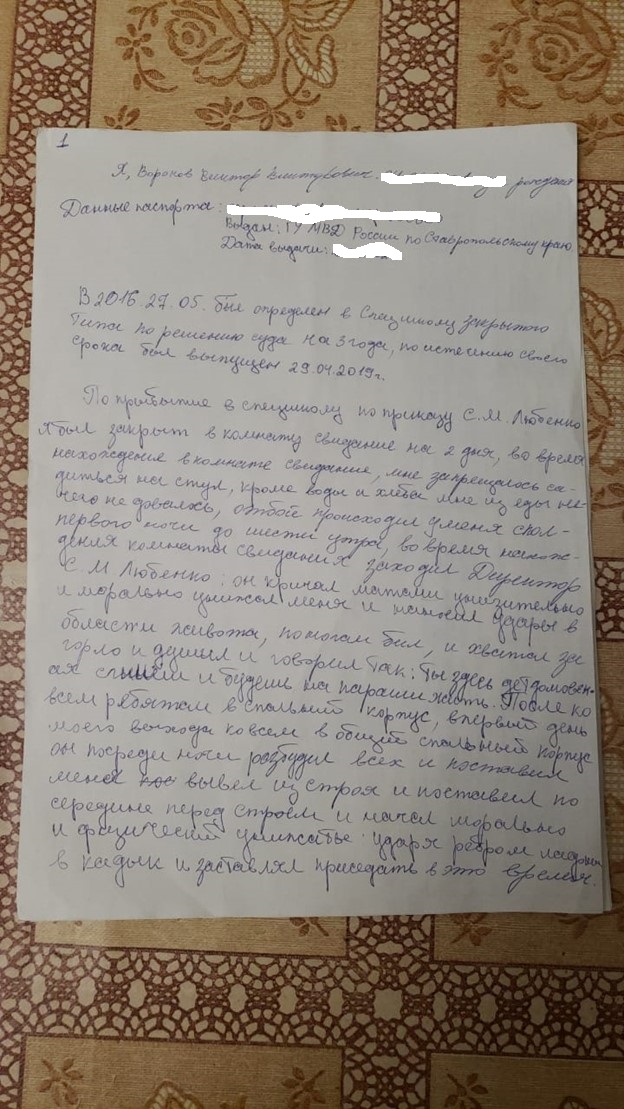 1
Я, Воронов Виктор Викторович. рождения
Данные паспорта:
Выдан: ГУ МВД России по Ставропольскому краю
Дата выдачи:
В 2016. 27. 05. был определен в Спецшколу закрытого
Типа по решению суда на 3 года, по истечению своего
срока был выпущен 29.04.2019г.
По прибытие в спецшколу по приказу С.М. Любенко
я был закрыт в комнату свидание на 2 дня, во время
нахождение в комнате свидание, мне запрещалось са-
диться на стул, кроме воды и хлеба мне из еды не-
чего не довалось, отбой происходил у меня с пол-
первого ночи до шести утра, во время нахож-
дения комнаты свидания заходил Директор
С.М Любенко: он кричал матами унизительно
и морально унижал меня и наносил удары в
области живота, по ногам бил, и хватал за
горло и душил и говорил так: ты здесь детдомовен-
и будешь на параши жить. После ко
всем ребятам в спальный корпус, в первый день
моего выхода ко всем в общий спальный корпус
он посреди ночи разбудил всех и поставил
меня вывел из строя и поставил по
середине перед строем и начал морально
и физический унижать ударя ребром ладони
в кадык и заставлял приседать в это время.